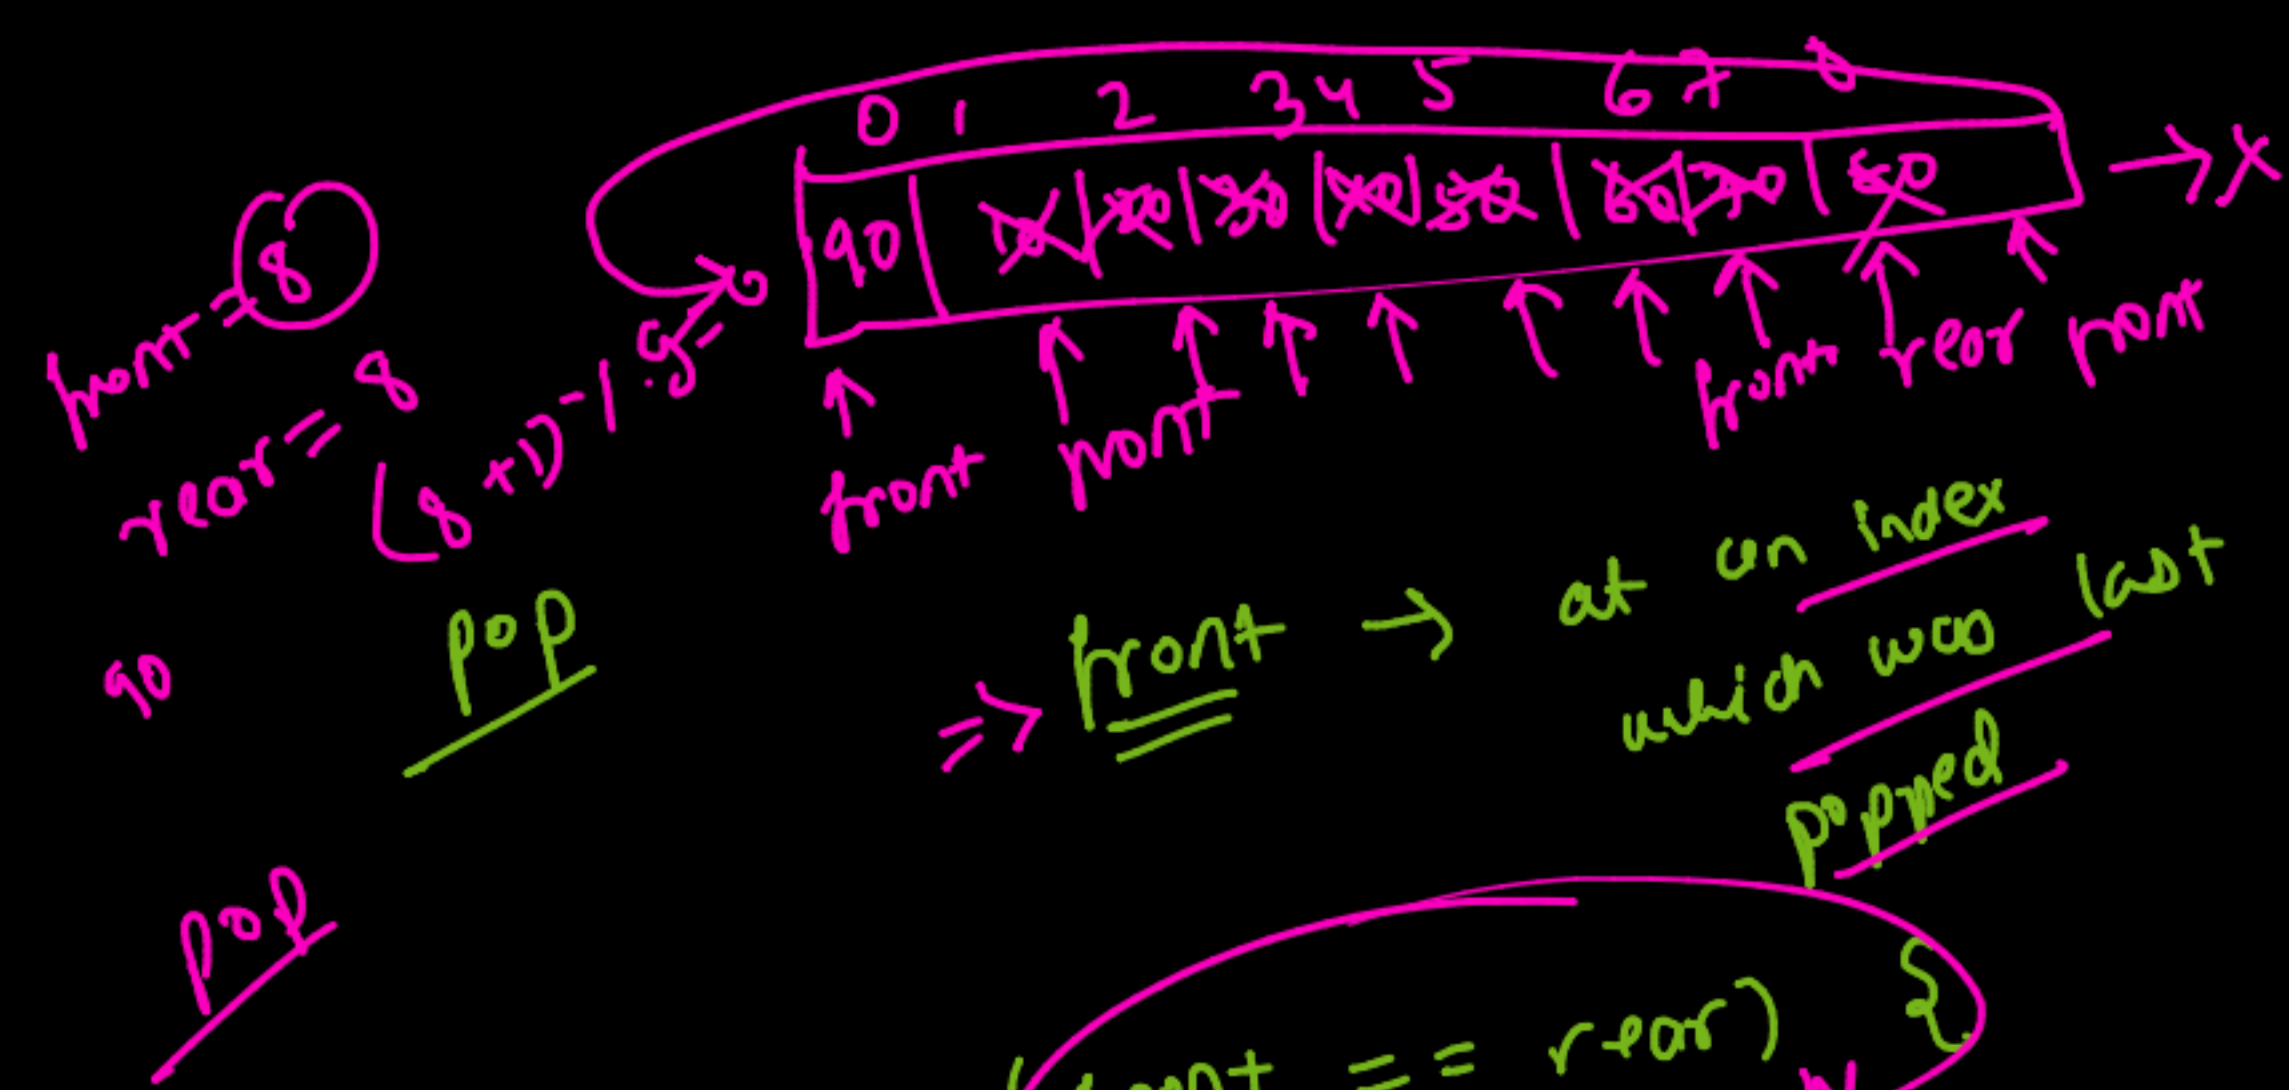 0 1 2 3 4 5 6 7 8
90 | 10 | 20 | 30 | 40 | 50 | 60 | 70 | 80 → X
front = 8
rear = 8
(8 +1) -1. 9 = 0
front front front rear front
90
pop
=> front → at an index
which was last
popped
pop
== rear) {